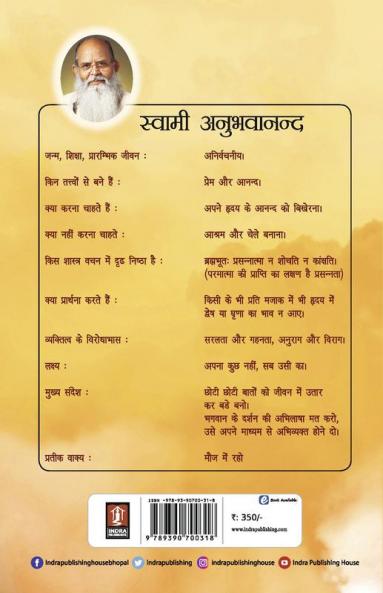 स्वामी अनुभवानन्द
जन्म, शिक्षा, प्रारम्भिक जीवन : अनिर्वचनीय।
किन तत्त्वों से बने हैं : प्रेम और आनन्द।
क्या करना चाहते हैं : अपने हृदय के आनन्द को बिखेरना।
क्या नहीं करना चाहते : आश्रम और चेले बनाना।
किस शास्त्र वचन में दृढ निष्ठा है : ब्रह्मभूतः प्रसन्नात्मा न शोचति न कांक्षति।
(परमात्मा की प्राप्ति का लक्षण है प्रसन्नता)
क्या प्रार्थना करते हैं : किसी के भी प्रति मजाक में भी हृदय में
द्वेष या घृणा का भाव न आए।
व्यक्तित्व के विरोधाभास : सरलता और गहनता, अनुराग और विराग।
लक्ष्य : अपना कुछ नहीं, सब उसी का।
मुख्य संदेश : छोटी छोटी बातों को जीवन में उतार
कर बडे बनो।
भगवान के दर्शन की अभिलाषा मत करो,
उसे अपने माध्यम से अभिव्यक्त होने दो।
प्रतीक वाक्य : मौज में रहो
INDRA
ISBN -978-93-90700-31-8
9789390700318
e Book Available
₹: 350/-
www.indrapublishing.com
Indrapublishinghousebhopal Indrapublishing indrapublishinghouse Indra Publishing House